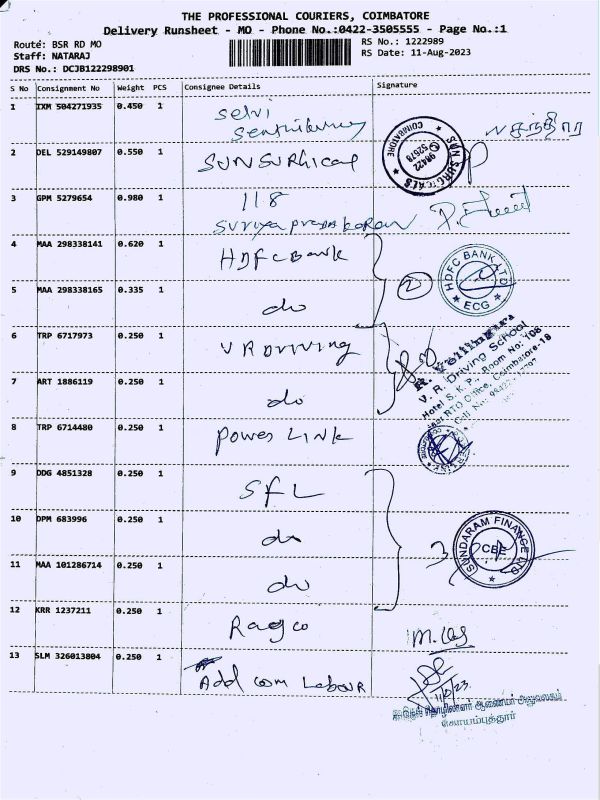 THE PROFESSIONAL COURIERS, COIMBATORE
Delivery Runsheet - MO - Phone No.:0422-3505555 - Page No.:1
Route: BSR RD MO
Staff: NATARAJ
DRS No.: DCJB122298901
RS No.: 1222989
RS Date: 11-Aug-2023
S No Consignment No Weight PCS Consignee Details Signature
1 IXM 504271935 0.450 1 Selvi
2 DEL 529149807 0.550 1 SUNSURHICAL
SUN SURGICALS
COIMBATORE
98422
52678
3 GPM 5279654 0.980 1 118
Suriyaprabakaran
4 MAA 298338141 0.620 1 HDFC Bank
5 MAA 298338165 0.335 1 do
2
HDFC BANK LTD
ECG
6 TRP 6717973 0.250 1 VR DRIVING
7 ART 1886119 0.250 1 do
V. R. Driving School
Hotel S. K. P., Room No: 108
RTO Office, Coimbatore-18
8 TRP 6714480 0.250 1 Power Link
9 DDG 4851328 0.250 1 SFL
10 DPM 683996 0.250 1 do
11 MAA 101286714 0.250 1 do
3
SUNDARAM FINANCE LTD
CBE
12 KRR 1237211 0.250 1 Ragco
13 SLM 326013804 0.250 1 Add Com Labour
கோயம்புத்தூர்